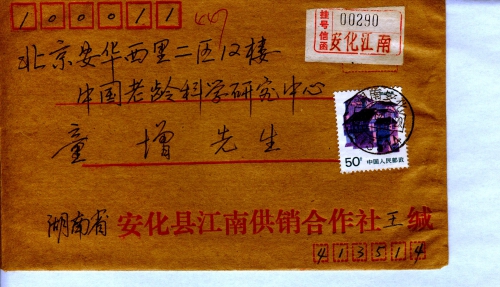 100011
挂号信函
00290
安化江南
北京安华西里二区12楼
中国老龄科学研究中心
童增先生
50分 中国人民邮政
湖南省 安化县江南供销合作社 王缄
413514